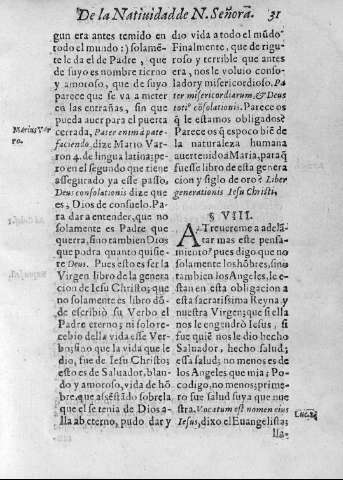 De la Natiuidad de N. Señora. 31
gun era antes temido en
todo el mundo:) solamẽ-
te le da el de Padre, que
de suyo es nombre tierno
y amoroso, que de suyo
parece que se va a meter
en las entrañas, sin que
pueda auer para el puerta
cerrada, Pater enim à pate-
faciendo, dize Marco Var-
ron 4. de lingua latina; pe-
ro en el segundo que tiene
assegurado ya este passo,
Deus consolationis dize que
es, Dios de consuelo. Pa-
ra dar a entender, que no
solamente es Padre que
querra, sino tambien Dios
que podra quanto quisie-
re Deus. Pues esto es ser la
Virgen libro de la genera
cion de Iesu Christo; que
no solamente es libro dõ-
de escribiò su Verbo el
Padre eterno; ni solo re-
cebio della vida esse Ver-
bo; sino que la vida que le
dio, fue de Iesu Christo;
esto es de Saluador, blan-
do y amoroso, vida de hõ-
bre, que assestãdo sobre la
que el se tenia de Dios a-
lla ab eterno, pudo dar y
Marcus Var-
ro.
dio vida a todo el mũdo
Finalmente, que de rigu-
roso y terrible que antes
era, nos le voluio conso-
lador y misericordioso. Pa
ter misericordiarum, & Deus
toti⁹ cõsolationis. Parece os
q̃ le estamos obligados?
Parece os q̃ es poco biẽ de
la naturaleza humana
auer tenido a Maria, para q̃
fuesse libro de esta genera
cion y siglo de oro? Liber
generationis Iesu Christi,
§ VIII.
ATreuereme a adelã
tar mas este pensa-
miento? pues digo que no
solamente los hõbres, sino
tambien los Angeles, le e-
stan en esta obligacion a
esta sacratissima Reyna y
nuestra Virgen; que si ella
nos le engendrò Iesus, si
fue quiẽ nos le dio hecho
Saluador, hecho salud;
essa salud; no menos es de
los Angeles que mia; Po-
co digo, no menos; prime-
ro fue salud suya que nue
stra. Vocatum est nomen eius
Iesus, dixo el Euangelista;
lla-
Luc. 2.